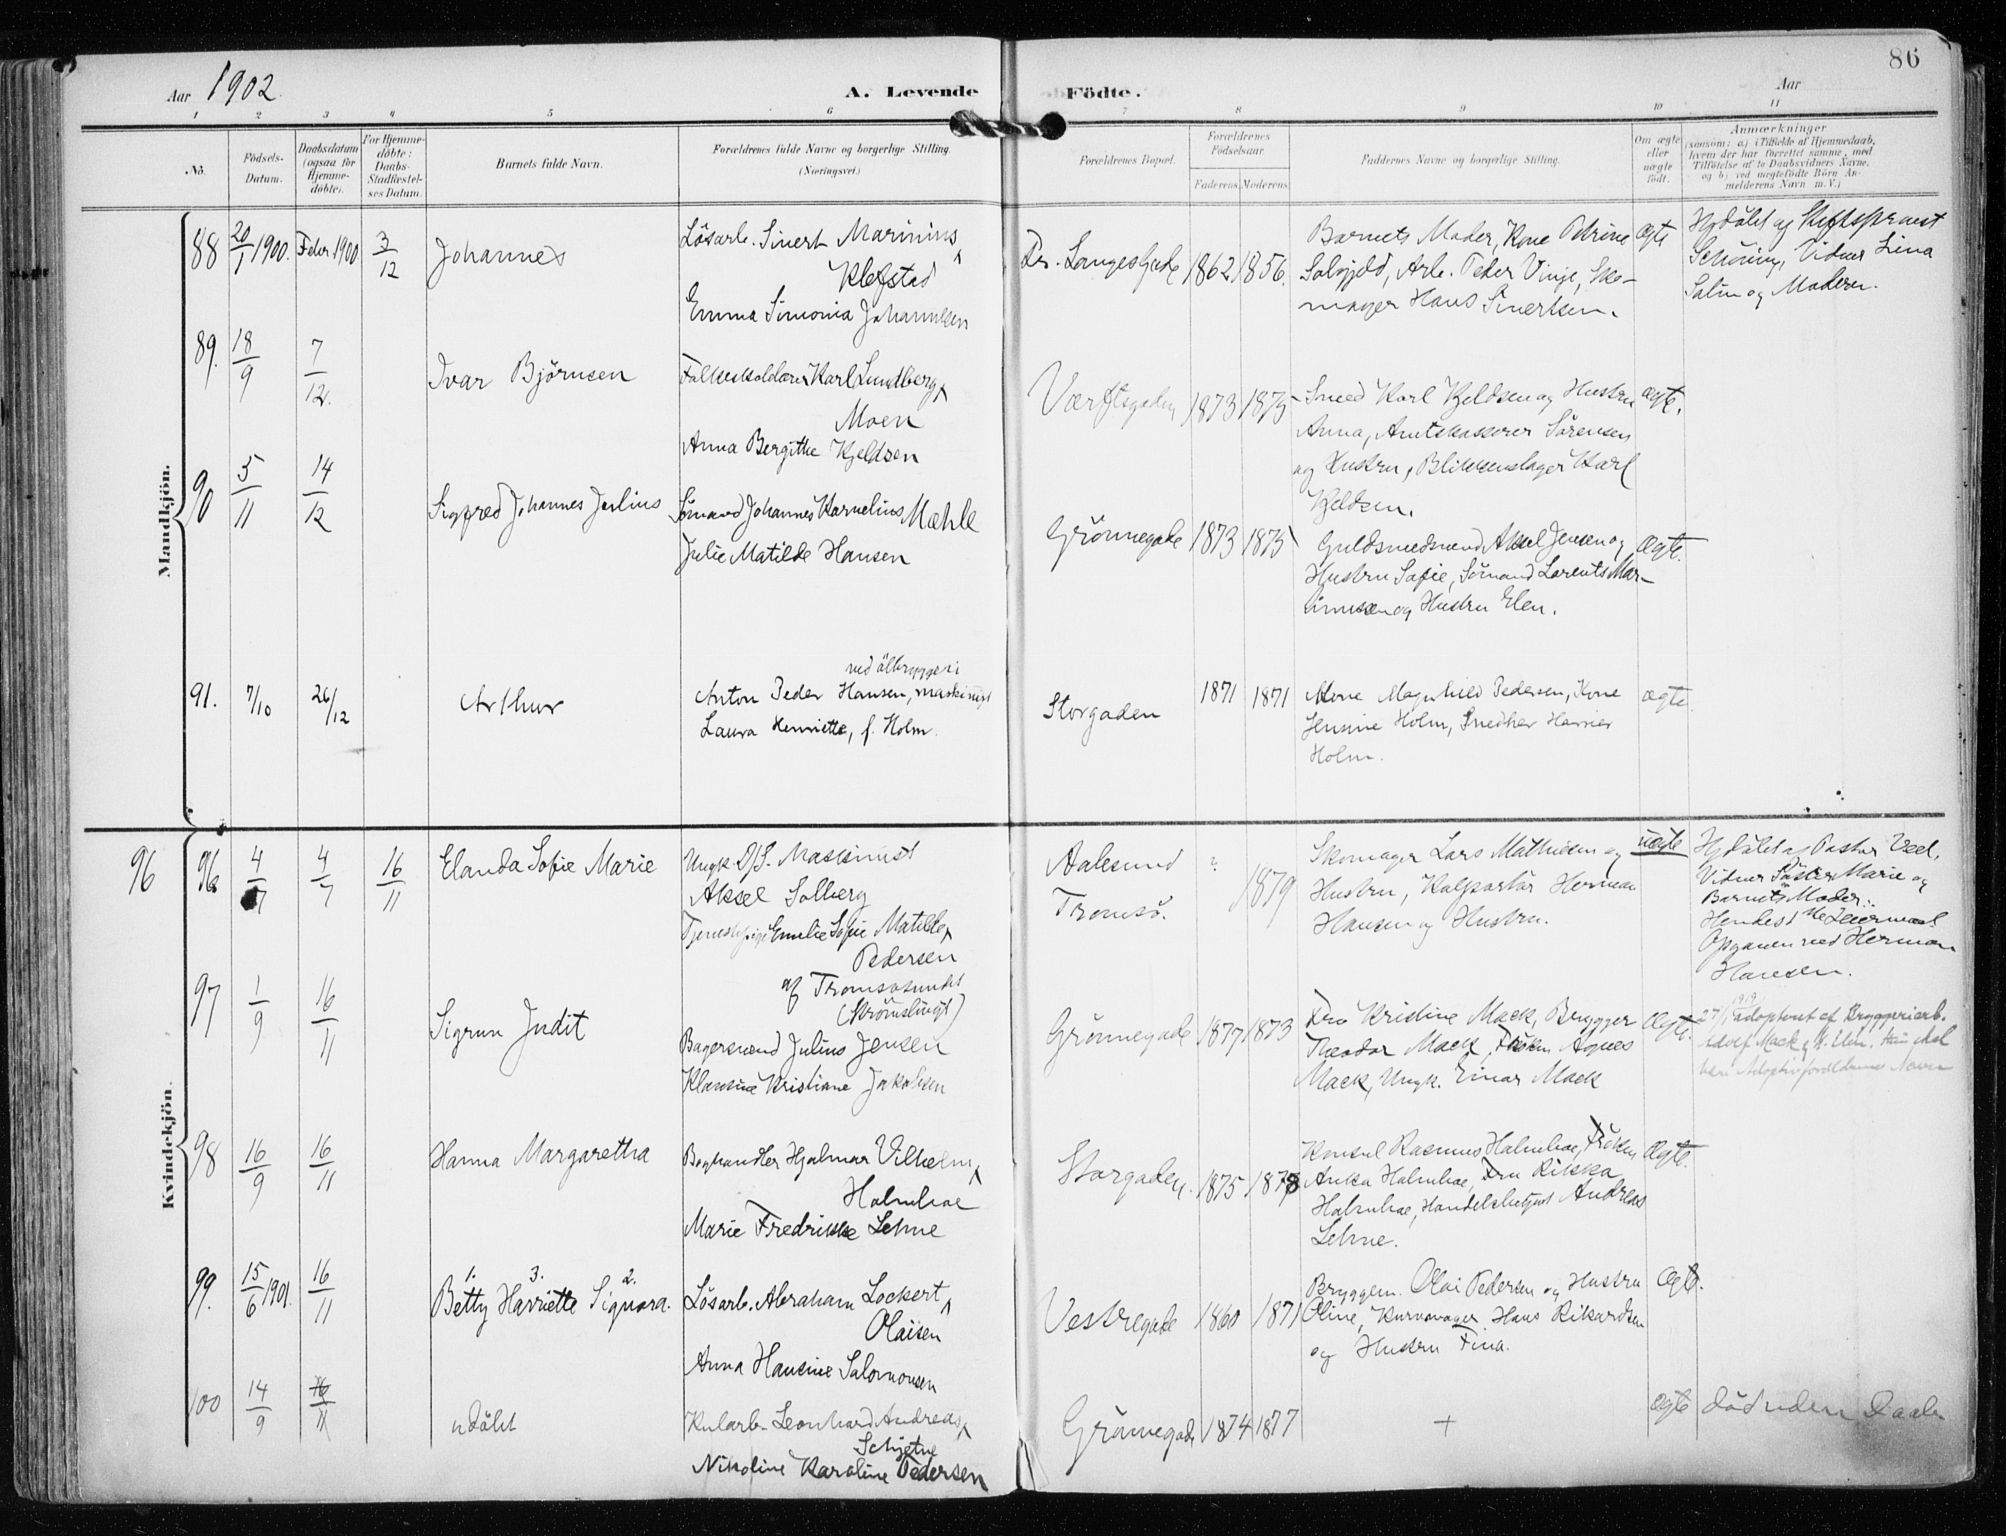 86
Aar 1902.
A. Levende Födte.
Aar
1 2 3 4 5 6 7 8 9 10 11
No.
Födsels-Datum.
Daabsdatum (ogsaa for Hjemme-döbte).
For Hjemme-döbte: Daabs-Stadfæstel-ses Datum.
Barnets fulde Navn.
Forældrenes fulde Navne og borgerlige Stilling.
(Næringsvei.)
Forældrenes Bopæl.
Forældrenes Födselsaar.
Faderens. Moderens.
Faddernes Navne og borgerlige Stilling.
Om ægte eller uægte födt.
Anmærkninger
(saasom: a.) i Tilfælde af Hjemmedaab,
hvem der har forrettet samme, med
Tilföielse af to Daabsvidners Navne,
og b) ved uægtefödte Börn An-
melderens Navn m. V.)
Mandkjön.
88 20/1 1900. Febr 1900 3/12 Johannes
Lösarb. Sivert Marinius
Klefstad
Emma Simonia Johannesen
Dr. Langes Gade 1862 1856.
Barnets Moder, Kone Petrine
Solvjeld, Arb. Peder Vinje, Sko-
mager Hans Sivertsen.
ægte
Hjdöbt af Stiftsprovst
Schöning, Vidner Lina
Salin og Moderen.
89. 18/9 7/12. Ivar Björnsen
Folkeskolelærer Karl Lundberg
Moen
Anna Bergitte Kjeldsen
Værftsgaden 1873 1875
Smed Karl Kjeldsen og Hustru
Anna, Amtskasserer Sörensen
og Hustru, Blikkenslager Karl
Kjeldsen.
ægte.
90 5/11 14/12 Sigfred Johannes Julius
Sömand Johannes Kornelius Mæhle
Julie Matilde Hansen
Grönnegade 1873 1875
Guldsmedsvend Aksel Jensen og
Hustru Sofie, Sömand Lorents Mar-
tinusen og Hustru Elen.
Ægte.
91. 7/10 26/12 Arthur
ved ölbryggeri
Anton Peder Hansen, maskinist
Laura Henriette, f. Holm.
Storgaden 1871 1871
Kone Magnhild Pedersen, Kone
Jensine Holm, Snedker
Holm.
ægte.
Kvindekjön.
96 96 4/7 4/7 16/11 Elanda Sofie Marie
Ungk. D/S. Maskinist
Aksel Solberg
Tjenestepige Emilie Sofie Matilde
Pedersen
af Tromsösundet
Aalesund
Tromsö.
? 1879
Skomager Lars Mathisen og
Hustru, Kolportör Herman
Hansen og Hustru.
uægte
Hjdöbt af Pastor Veel,
Vidner Söster Marie og
Barnets Moder.
Hendes 1ste Leiermaal
Opgaven ved Herman
Hansen.
97 1/9 16/11 Sigrun Judit
Bagersvend Julius Jensen
Klausine Kristiane Jakobsen
Grönnegade 1877 1873
Fru Kristine Mack, Brygger
Theodor Mack, Fröken Agnes
Mack, Ungk. Einar Mack
Ægte.
27/1 1919 adopteret af Bryggeriarb.
Mack
Adoptivforældrenes Navn
98 16/9 16/11 Hanna Margaretha
Boghandler Hjalmar Vilhelm
Holmboe
Marie Fredrikke Lehne
Storgaden. 1875 1878
Konsul Rasmus Holmboe, Fröken
Anka Holmboe, Fru Rikka
Holmboe, Handelsbetjent Andreas
Lehne.
Ægte.
99. 15/6 1901. 16/11
1. 3. 2.
Betty Harriette Signora.
Lösarb. Abraham Lockert
Olaisen
Anna Hansine Salomonsen
Vestregade 1860 1871
Bryggem. Olai Pedersen og Hustru
Oline, Kurvmager Hans Rikardsen
og Hustru Fina.
Ægte.
100 14/9 16/11 udöbt
Kularb. Leonhard Andreas
Schjetne
Nikoline Karoline Pedersen
Grönnegade 1874 1877
+
ægte
död uden Daab